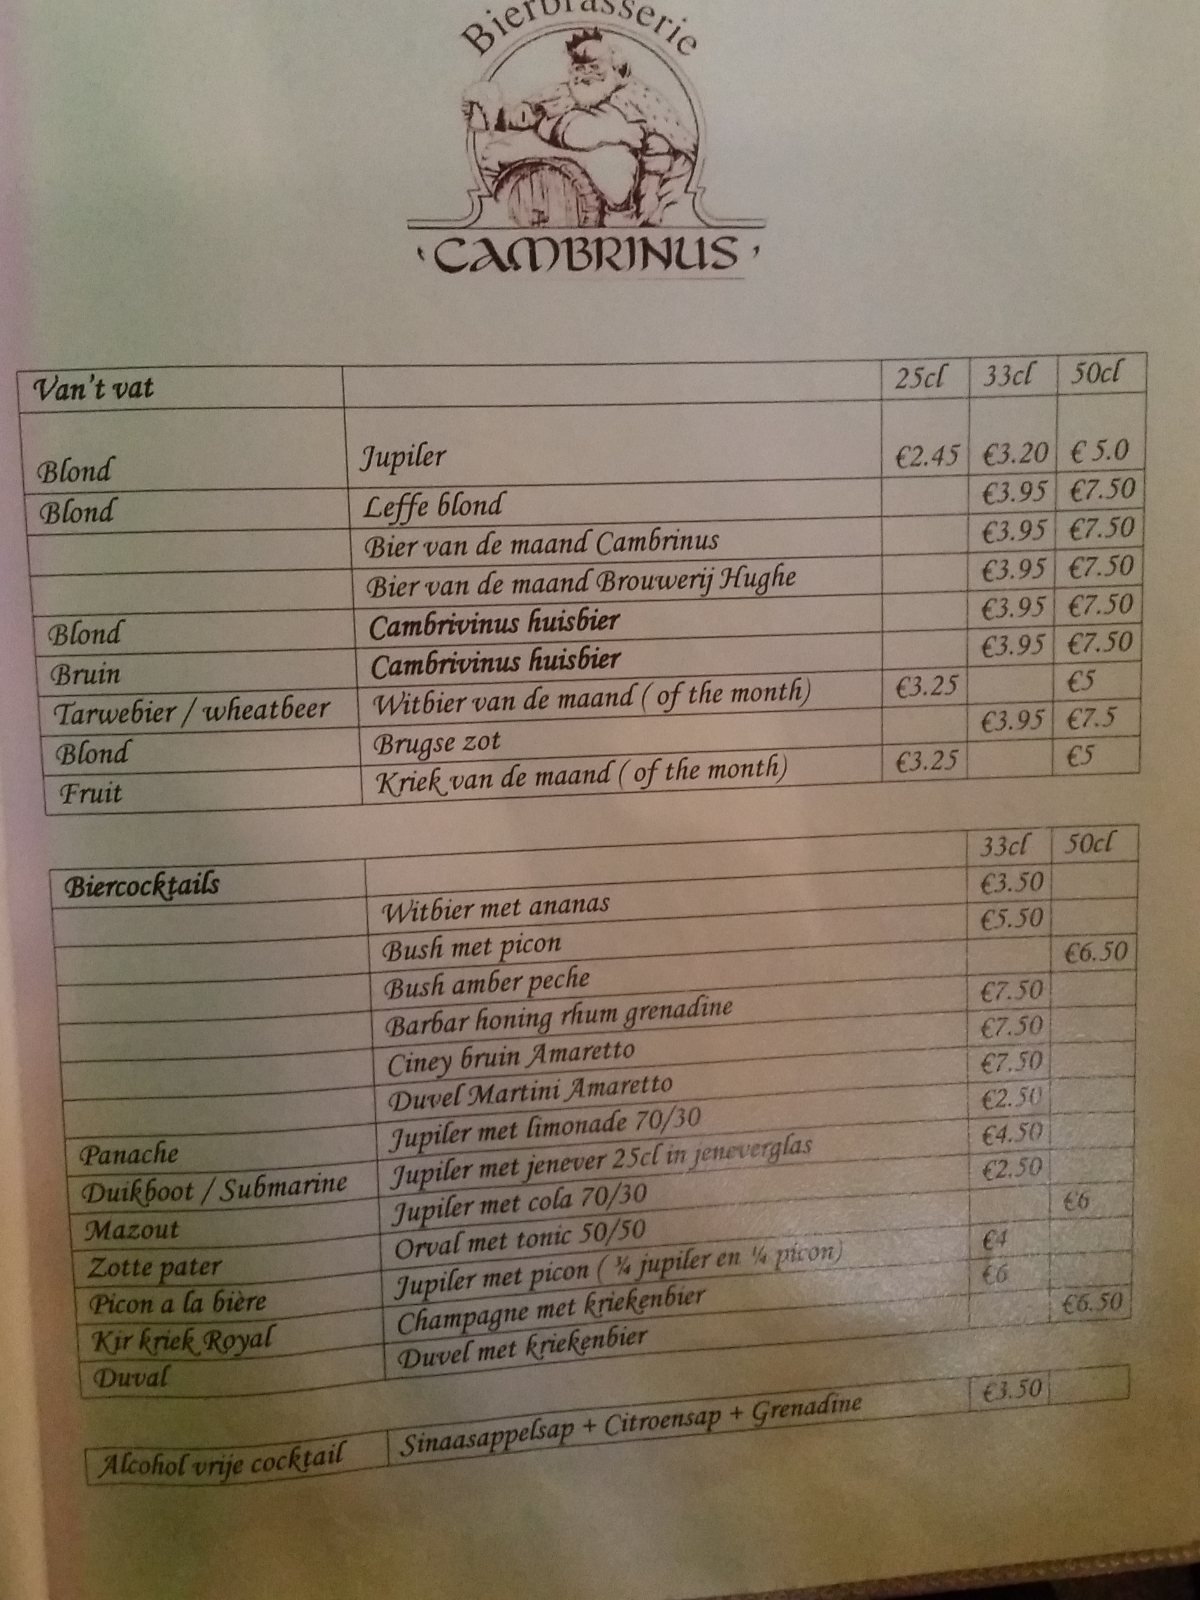 Bierbrasserie
'CAMBRINUS'
Van't vat 25cl 33cl 50cl
Blond Jupiler €2.45 €3.20 € 5.0
Blond Leffe blond €3.95 €7.50
Bier van de maand Cambrinus €3.95 €7.50
Bier van de maand Brouwerij Hughe €3.95 €7.50
Blond Cambrivinus huisbier €3.95 €7.50
Bruin Cambrivinus huisbier €3.95 €7.50
Tarwebier / wheatbeer Witbier van de maand ( of the month) €3.25 €5
Blond Brugse zot €3.95 €7.5
Fruit Kriek van de maand ( of the month) €3.25 €5
Biercocktails 33cl 50cl
Witbier met ananas €3.50
Bush met picon €5.50
Bush amber peche €6.50
Barbar honing rhum grenadine €7.50
Ciney bruin Amaretto €7.50
Duvel Martini Amaretto €7.50
Panache Jupiler met limonade 70/30 €2.50
Duikboot / Submarine Jupiler met jenever 25cl in jeneverglas €4.50
Mazout Jupiler met cola 70/30 €2.50
Zotte pater Orval met tonic 50/50 €6
Picon a la bière Jupiler met picon ( ¾ jupiler en ¼ picon) €4
Kir kriek Royal Champagne met kriekenbier €6
Duval Duvel met kriekenbier €6.50
Alcohol vrije cocktail Sinaasappelsap + Citroensap + Grenadine €3.50